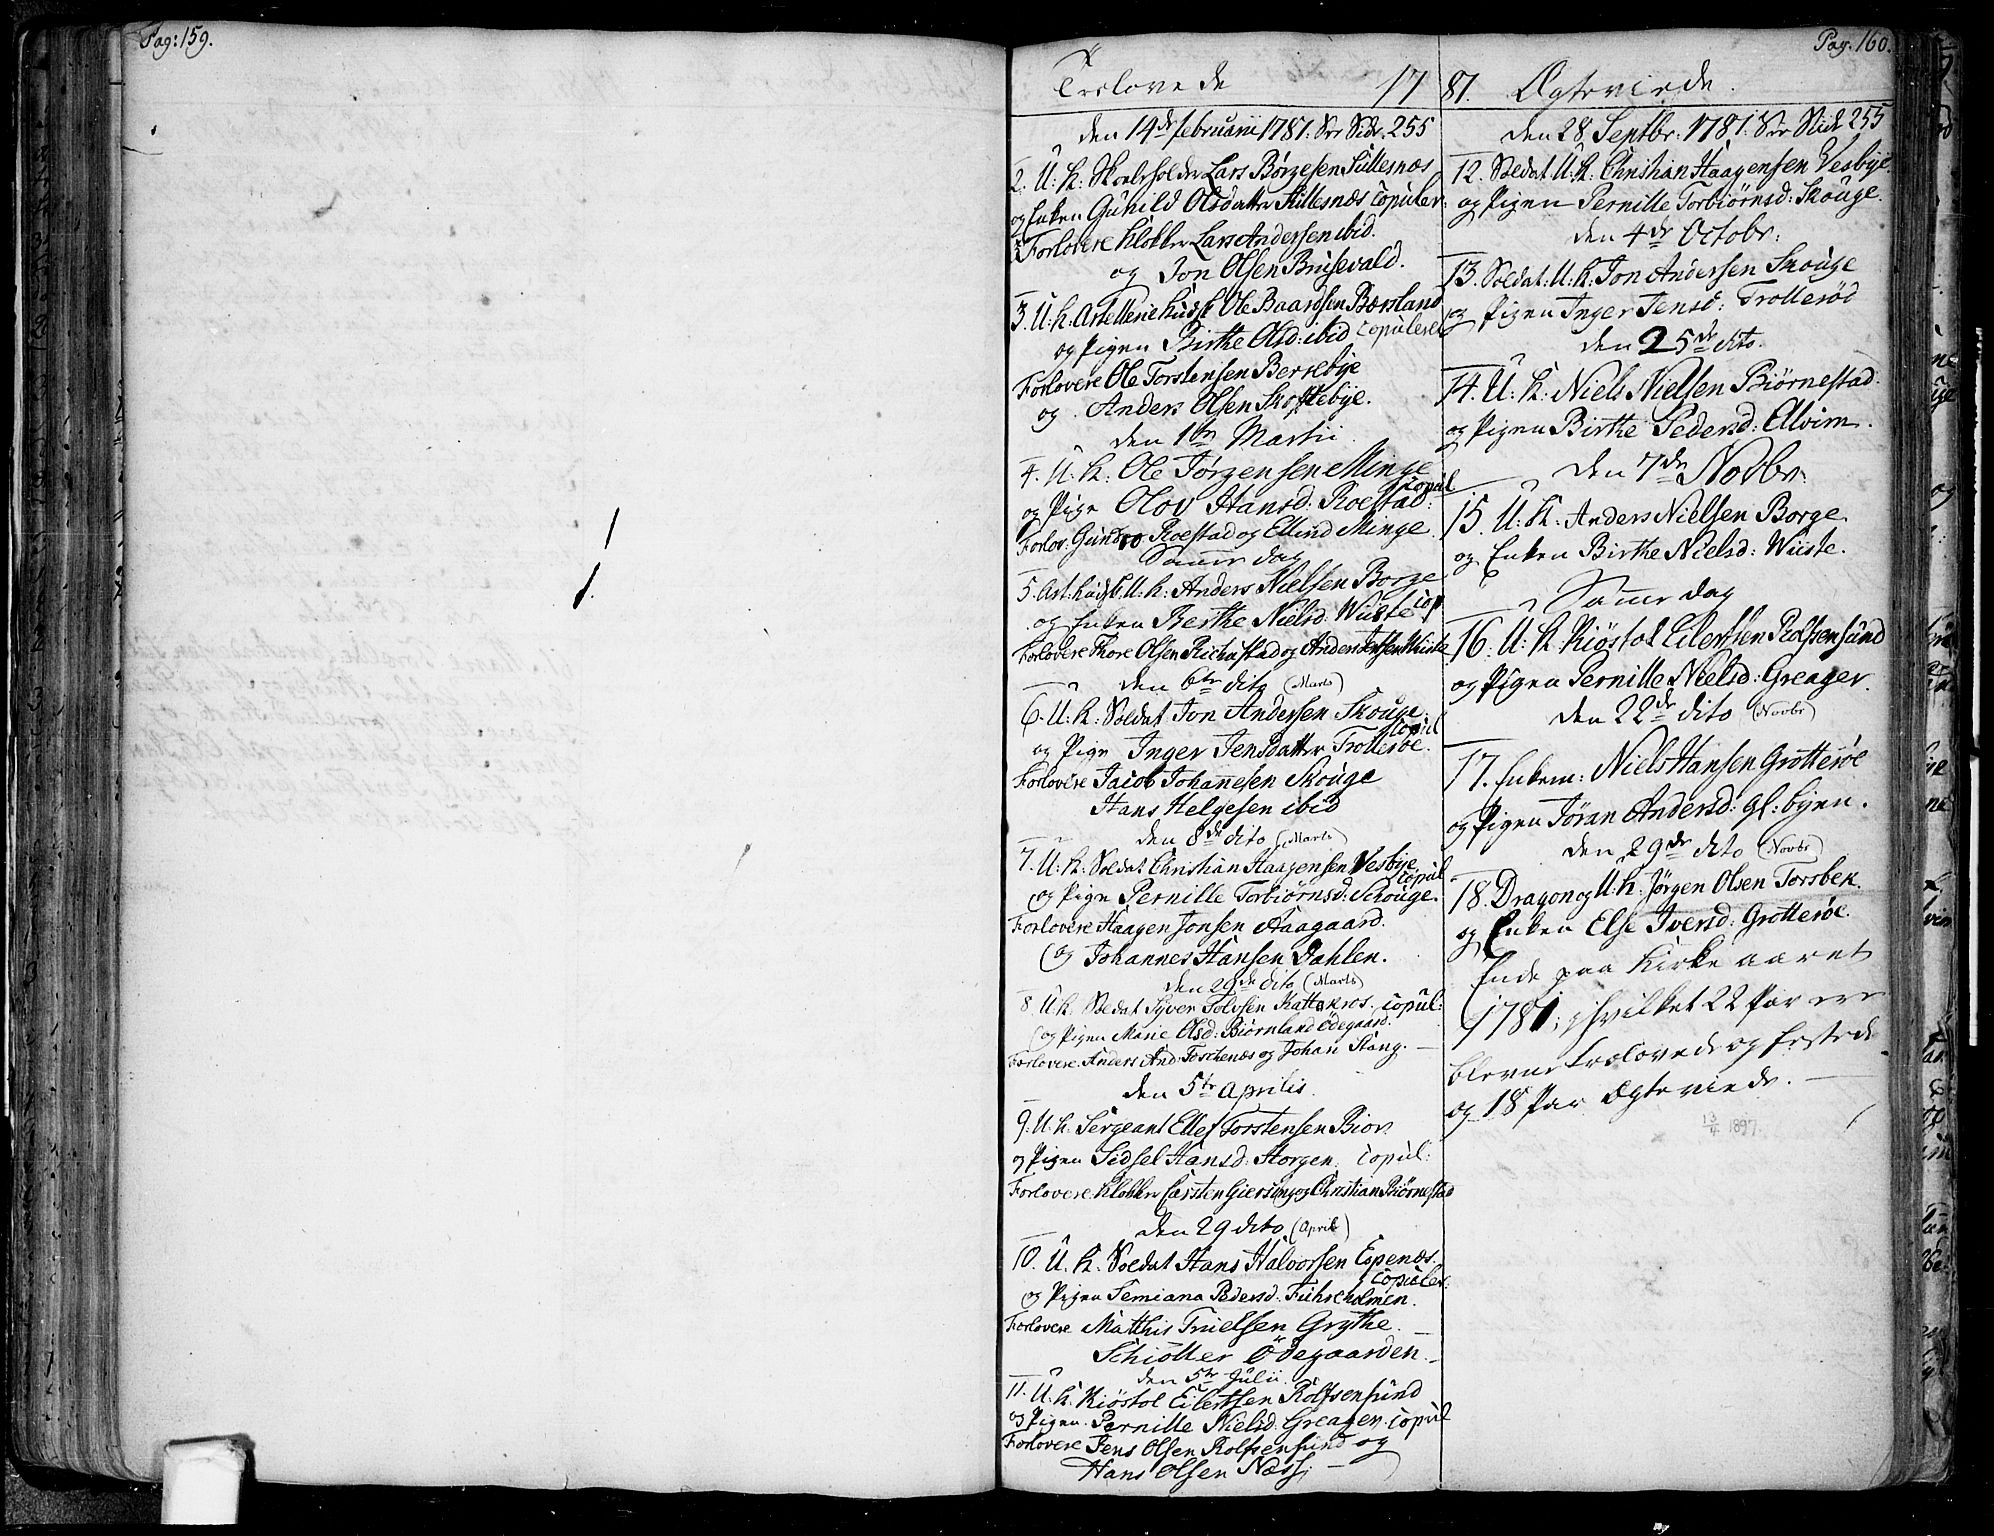 Pag: 159.
Pag. 160.
Trolovede 17
den 14de februarii 1781. See Side. 255
2. U: K: Skoleholder Lars Børgesen Sillesnæs
og Enken Guhild Olsdatter Killesnæs copuler.
Forlovere Klokker Lars Andersen ibid.
og Jon Olsen Brusevald.
3. U: K. Artellerie Kudsk Ole Baardsen Børsland
og Pigen Birthe Olsd: ibid copuleret
Forlovere Ole Torstensen Berrebye
og Anders Olsen Skottebye.
den 1te Martii
4. U: K: Ole Jørgensen Minge
copul
og Pige Olov Hansd: Roestad.
Forlov: Gunder Roestad og Ellend Minge.
Samme dag
5. Art: Kudsk U: K: Anders Nielsen Borge
og Enken Berthe Nielsd: Wiiste cop
Forlovere Thore Olsen Richestad og Anders Jensen Wiiste
den 6te dito (Marts)
6. U: K: Soldat Jon Andersen Skouge.
copul
og Pige Inger Jensdatter Trollerøe.
Forlovere Jacob Johannesen Skouge
Hans Helgesen ibid
den 8de dito (Marts)
7. U: K: Soldat Christian Haagensen Vesbye
copul
og Pige Pernille Torbiørnsd: Skouge.
Forlovere Haagen Jonsen Aaagaard.
og Johannes Hansen Dahlen.
den 29de dito (Marts)
8. U: K Soldat Syver Solvsen Kattekros. copul:
og Pigen Marie Olsd: Biørnland Ødegaard.
Forlovere. Anders And: Torschenæs og Johan Stang. —
den 5te Aprilis.
9. U: K: Sergeant Ellef Torstensen Biør.
og Pigen Sidsel Hansd: Storgen. copul:
Forlovere Klokker Carsten Giersing og Christian Biørnestad
den 29 dito (April)
10. U. K: Soldat Hans Halvorsen Espenæs
copuler:
og Pigen Semiana Pedersd. Fuhreholmen.
Forlovere Matthis Truelsen Grythe. —
Schiøtter Ødegaarden. —
den 5te Julii.
11. U: K. Kiøstol Eilertsen Rolfsensund
og Pigen. Pernille Nielsd: Greager. copul
Forlovere Jens Olsen Rolfsensund og
Hans Olsen Næss. —
81. Ægteviede.
den 28 Septbr: 1781: See Side 255
12. Soldat U: K: Christian Haagensen Vesbye
og Pigen Pernille Torbiørnsd: Skouge.
den 4de Octobr:
13. Soldat: U: K: Jon Andersen Skouge
og Pigen Inger Jensd: Trollerød
den 25de dito.
14. U: K: Niels Nielsen Biørnestad.
og Pigen Birthe Pedersd: Elvim.
den 7de Novbr:
15. U: K: Anders Nielsen Borge.
og Enken Birthe Nielsd: Wiiste.
Samme dag
16. U: K Kiøstol Eilertsen Rolfsensund
og Pigen Pernille Nielsd: Greager.
den 22de dito (Novbr)
17. Enkem: Niels Hansen Grotterøe
og Pigen Jøran Andersd: gl: byen.
den 29de dito (Novbr)
18. Dragon og U: K: Jørgen Olsen Torsbek.
og Enken Else Iversd: Grotterøe.
Ende paa Kirke aaret
1781, i hvilket 22 Par ere
blevne trolovede og festede
og 18 Par Ægteviede. —
13/4 1897.